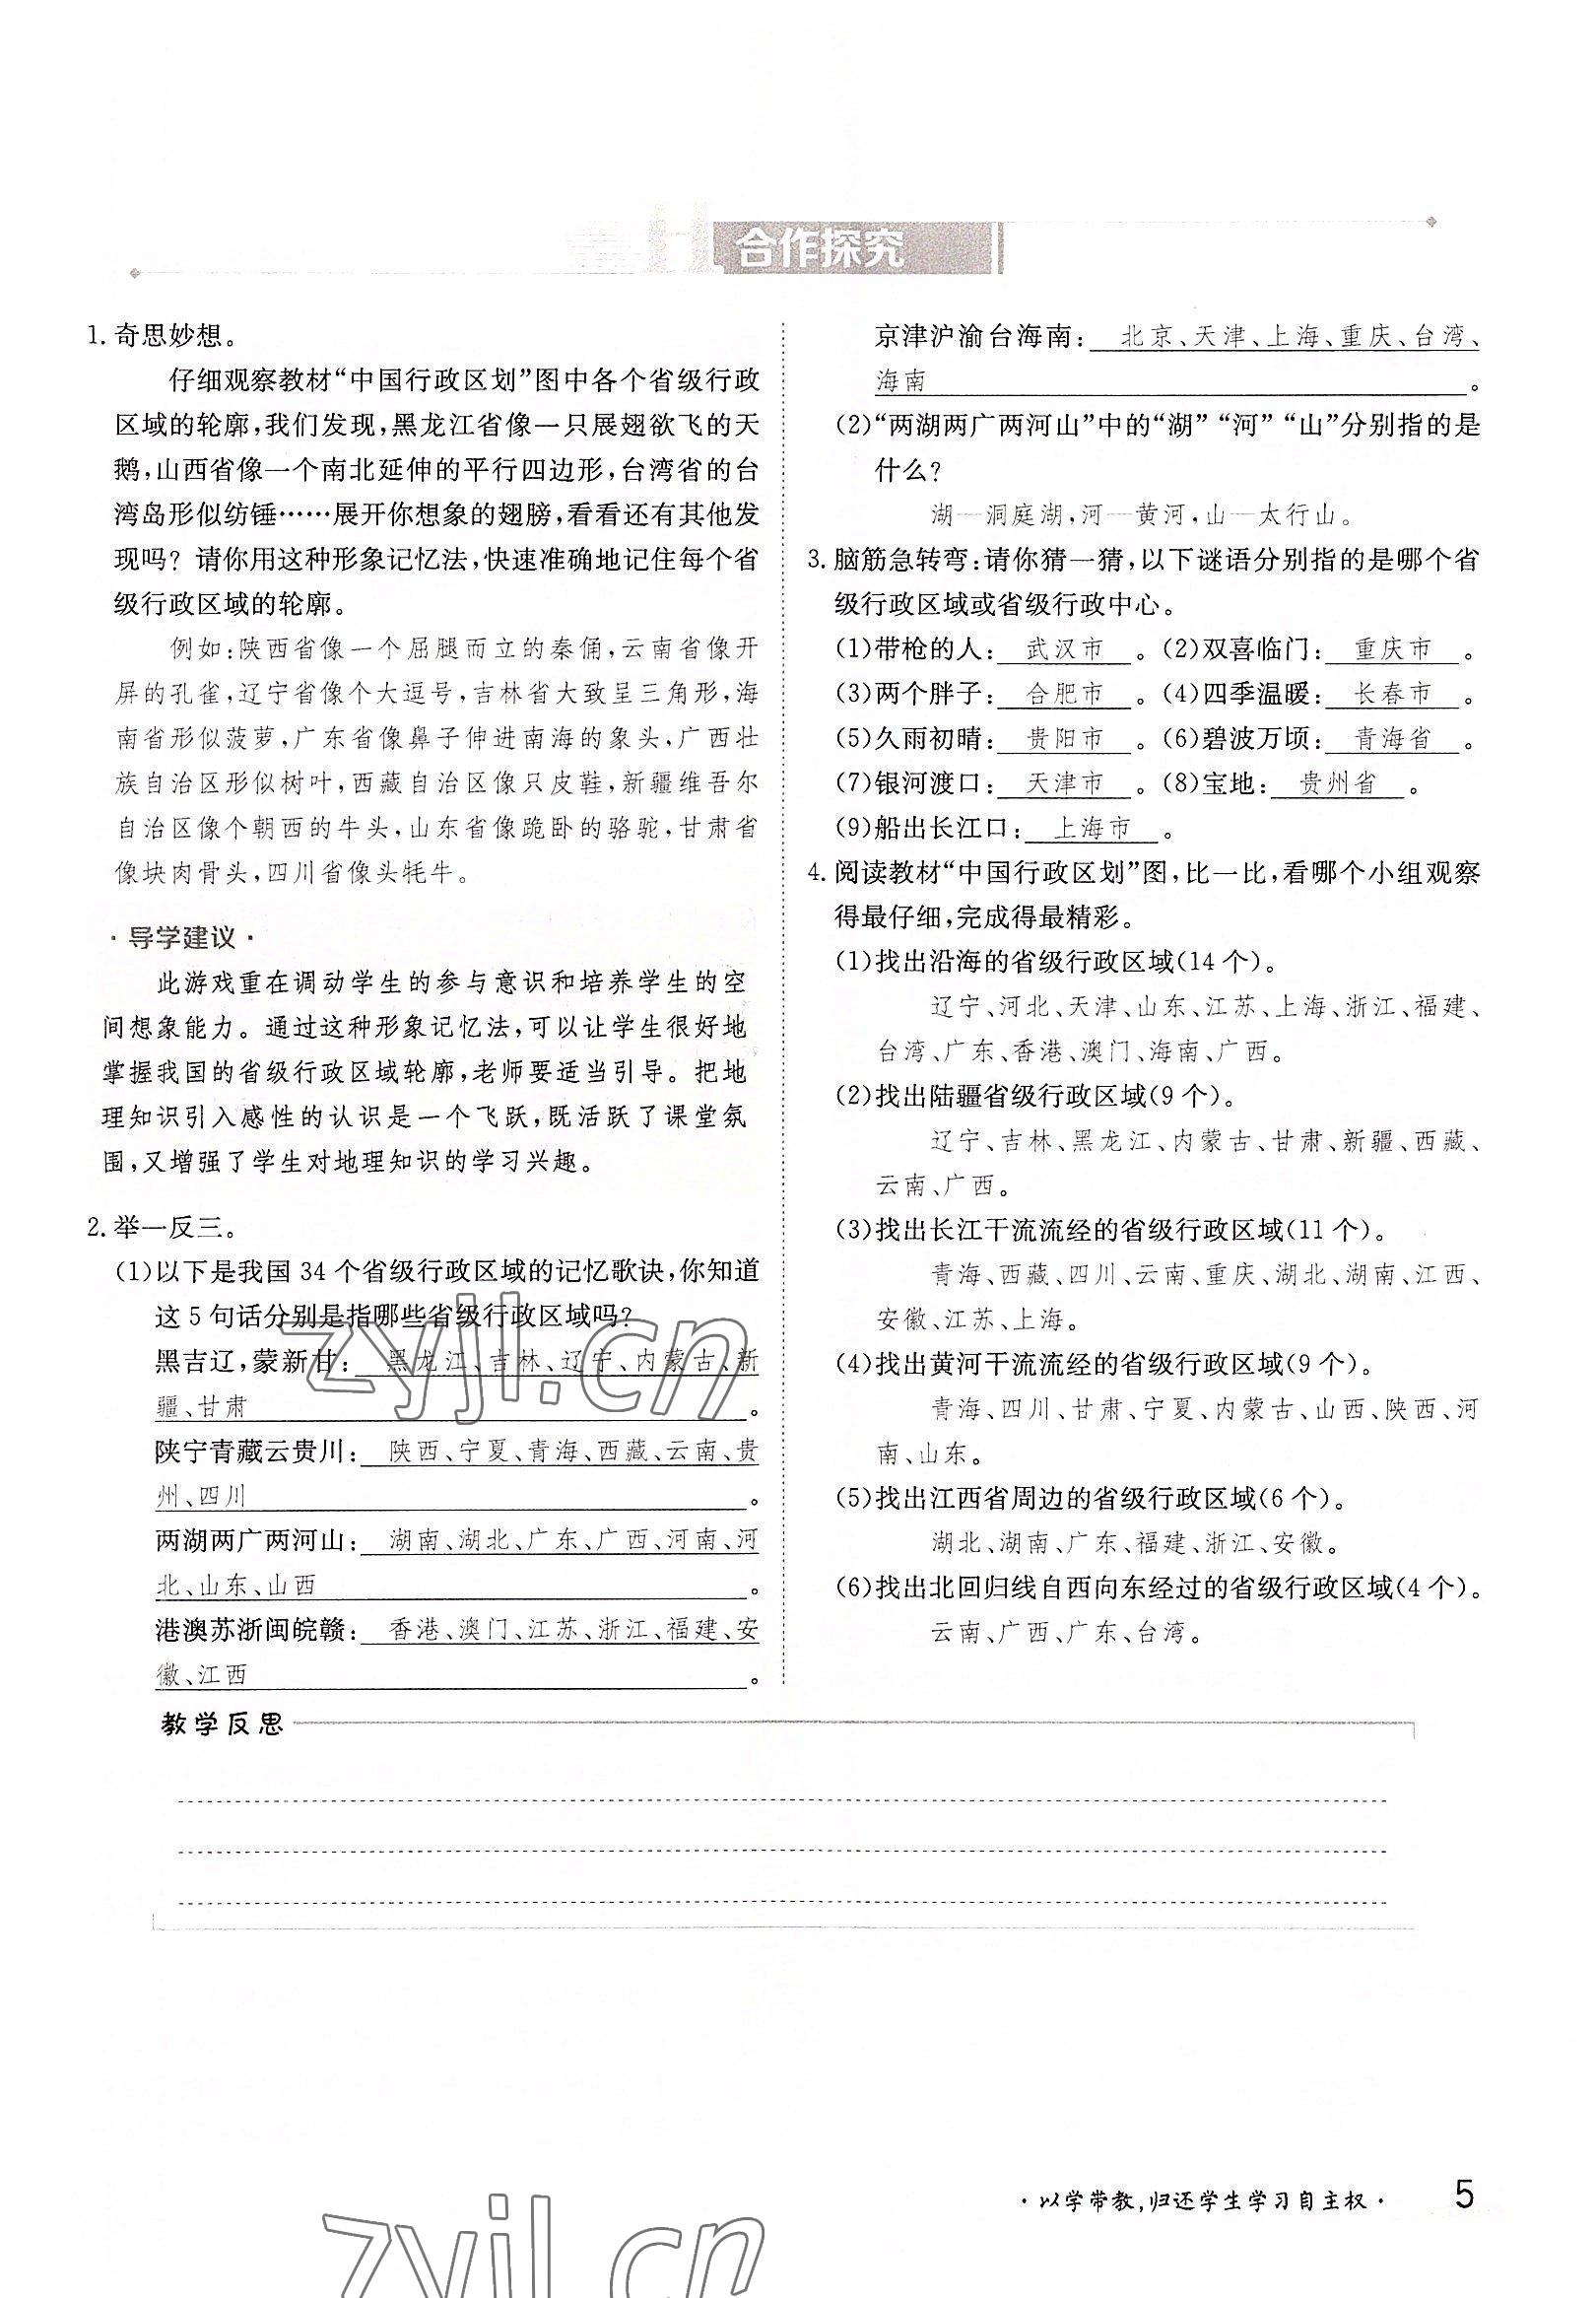 合作探究
1. 奇思妙想。
仔细观察教材“中国行政区划”图中各个省级行政
区域的轮廓,我们发现,黑龙江省像一只展翅欲飞的天
鹅,山西省像一个南北延伸的平行四边形,台湾省的台
湾岛形似纺锤……展开你想象的翅膀,看看还有其他发
现吗? 请你用这种形象记忆法,快速准确地记住每个省
级行政区域的轮廓。
例如:陕西省像一个屈腿而立的秦俑,云南省像开
屏的孔雀,辽宁省像个大逗号,吉林省大致呈三角形,海
南省形似菠萝,广东省像鼻子伸进南海的象头,广西壮
族自治区形似树叶,西藏自治区像只皮鞋,新疆维吾尔
自治区像个朝西的牛头,山东省像跪卧的骆驼,甘肃省
像块肉骨头,四川省像头牦牛。
·导学建议·
此游戏重在调动学生的参与意识和培养学生的空
间想象能力。通过这种形象记忆法,可以让学生很好地
掌握我国的省级行政区域轮廓,老师要适当引导。把地
理知识引入感性的认识是一个飞跃,既活跃了课堂氛
围,又增强了学生对地理知识的学习兴趣。
2. 举一反三。
(1)以下是我国 34 个省级行政区域的记忆歌诀,你知道
这 5 句话分别是指哪些省级行政区域吗?
黑吉辽,蒙新甘: 黑龙江、吉林、辽宁、内蒙古、新
疆、甘肃 。
陕宁青藏云贵川: 陕西、宁夏、青海、西藏、云南、贵
州、四川 。
两湖两广两河山: 湖南、湖北、广东、广西、河南、河
北、山东、山西 。
港澳苏浙闽皖赣: 香港、澳门、江苏、浙江、福建、安
徽、江西 。
京津沪渝台海南: 北京、天津、上海、重庆、台湾、
海南 。
(2)“两湖两广两河山”中的“湖”“河”“山”分别指的是
什么?
湖—洞庭湖,河—黄河,山—太行山。
3. 脑筋急转弯:请你猜一猜,以下谜语分别指的是哪个省
级行政区域或省级行政中心。
(1)带枪的人: 武汉市 。(2)双喜临门: 重庆市 。
(3)两个胖子: 合肥市 。(4)四季温暖: 长春市 。
(5)久雨初晴: 贵阳市 。(6)碧波万顷: 青海省 。
(7)银河渡口: 天津市 。(8)宝地: 贵州省 。
(9)船出长江口: 上海市 。
4. 阅读教材“中国行政区划”图,比一比,看哪个小组观察
得最仔细,完成得最精彩。
(1)找出沿海的省级行政区域(14 个)。
辽宁、河北、天津、山东、江苏、上海、浙江、福建、
台湾、广东、香港、澳门、海南、广西。
(2)找出陆疆省级行政区域(9 个)。
辽宁、吉林、黑龙江、内蒙古、甘肃、新疆、西藏、
云南、广西。
(3)找出长江干流流经的省级行政区域(11 个)。
青海、西藏、四川、云南、重庆、湖北、湖南、江西、
安徽、江苏、上海。
(4)找出黄河干流流经的省级行政区域(9 个)。
青海、四川、甘肃、宁夏、内蒙古、山西、陕西、河
南、山东。
(5)找出江西省周边的省级行政区域(6 个)。
湖北、湖南、广东、福建、浙江、安徽。
(6)找出北回归线自西向东经过的省级行政区域(4 个)。
云南、广西、广东、台湾。
教学反思
·以学带教,归还学生学习自主权· 5
zyjl.cn
zyjl.cn